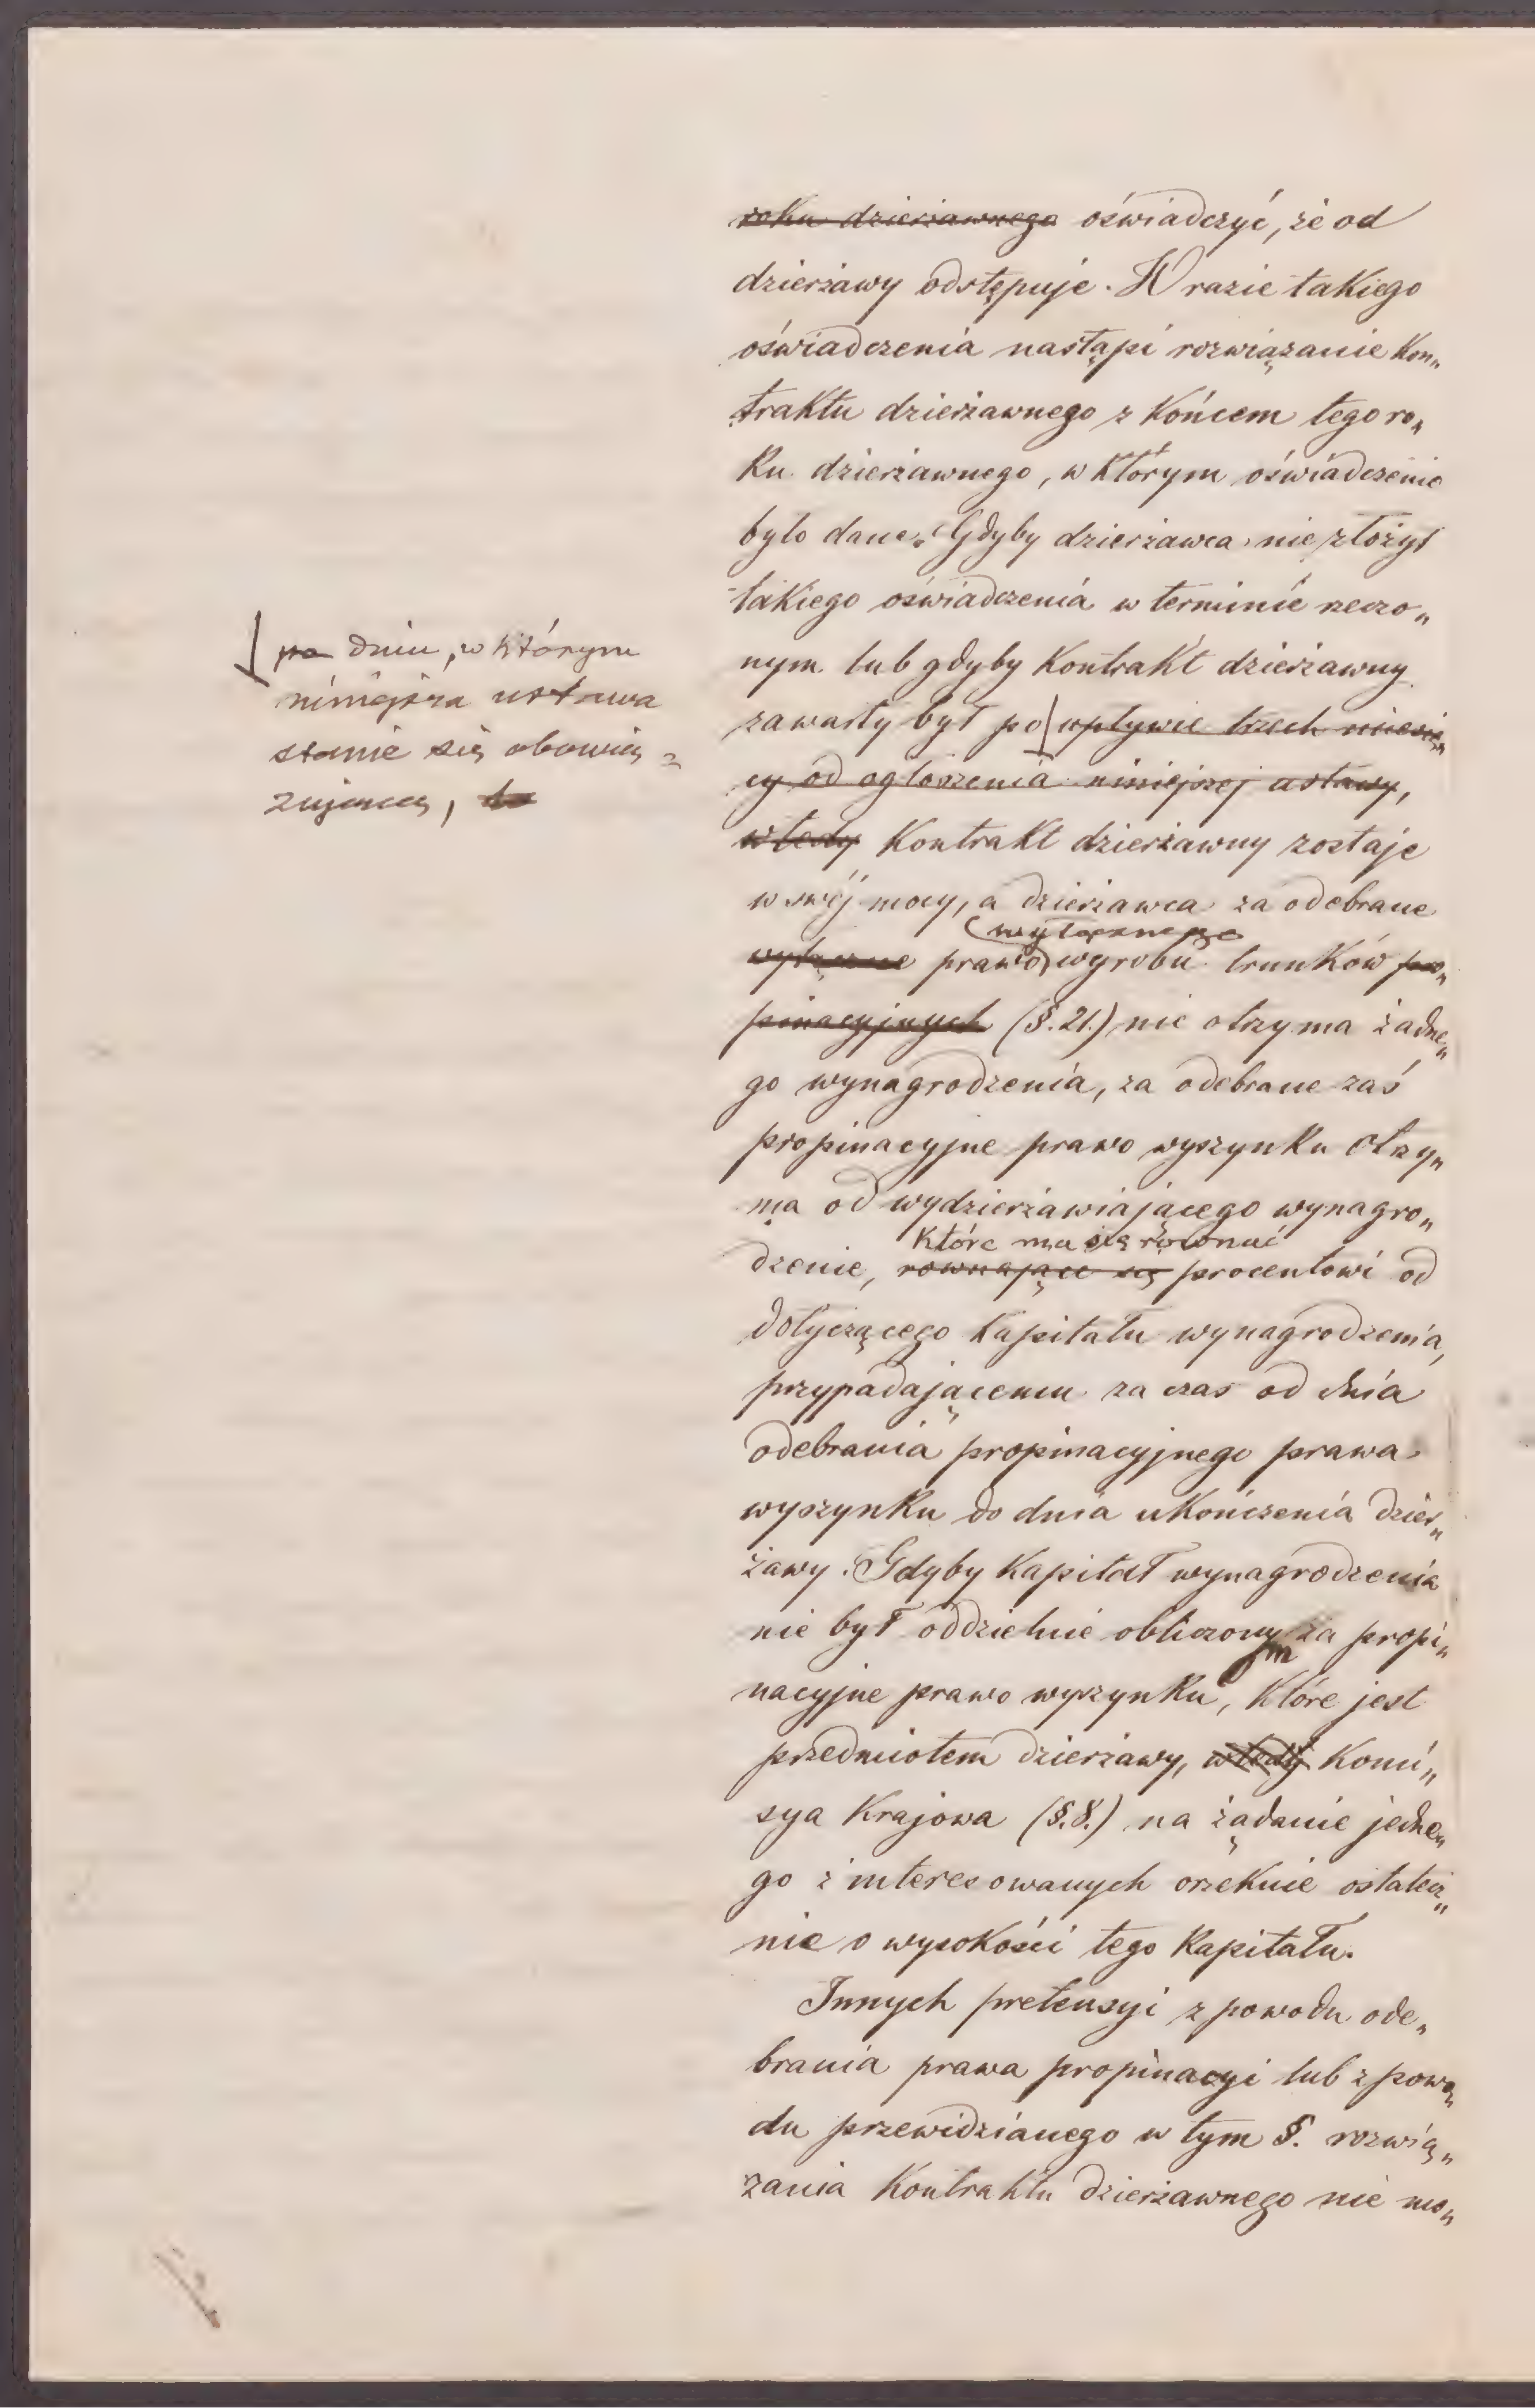 roku dzierżawnego oświadczyć, że od
dzierżawy odstępuje. W razie takiego
oświadczenia nastąpi rozwiązanie Kon„
traktu dzierżawnego z Końcem tego ro„
Ku dzierżawnego, w którym oświadczenie
było dane. Gdyby dzierżawca nie złożył
takiego oświadczenia w terminie rzeczo„
nym lub gdyby Kontrakt dzierżawny
zawarty był po upływie trzech miesię„
cy od ogłoszenia niniejszej ustawy,
po dniu, w którym
niniejsza ustawa
stanie się obowią=
zującą, to
wtedy Kontrakt dzierżawny zostaje
w swéj mocy, a dzierżawca za odebrane
wyłącznego
wyłączne prawo wyrobu trunków pro„
pinacyjnych (§. 21.) nie otrzyma żadne„
go wynagrodzenia, za odebrane zaś
propinacyjne prawo wyszynku otrzy„
ma od wydzierżawiającego wynagro„
które ma się równać
dzenie, rownające się procentowi od
dotyczącego Kapitału wynagrodzenia,
przypadającemu za czas od dnia
odebrania propinacyjnego prawa
wyszynku do dnia ukończenia dzier„
żawy. Gdyby Kapitał wynagrodzenia
nie był oddzielnie obliczonym za propi„
nacyjne prawo wyszynku, które jest
przedmiotem dzierżawy, wtedy Komi„
sya Krajowa (§. 8.) na żądanie jedne„
go z interesowanych orzeknie ostatecz„
nie o wysokości tego Kapitału.
Innych pretensyi z powodu ode„
brania prawa propinacyi lub z powo„
du przewidzianego w tym §. rozwią„
zania Kontraktu dzierżawnego nie mo„